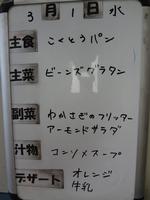 3月1日水
主食 こくとうパン
主菜 ビーンズグラタン
副菜 わかさぎのフリッター
アーモンドサラダ
汁物 コンソメスープ
デザート オレンジ
牛乳